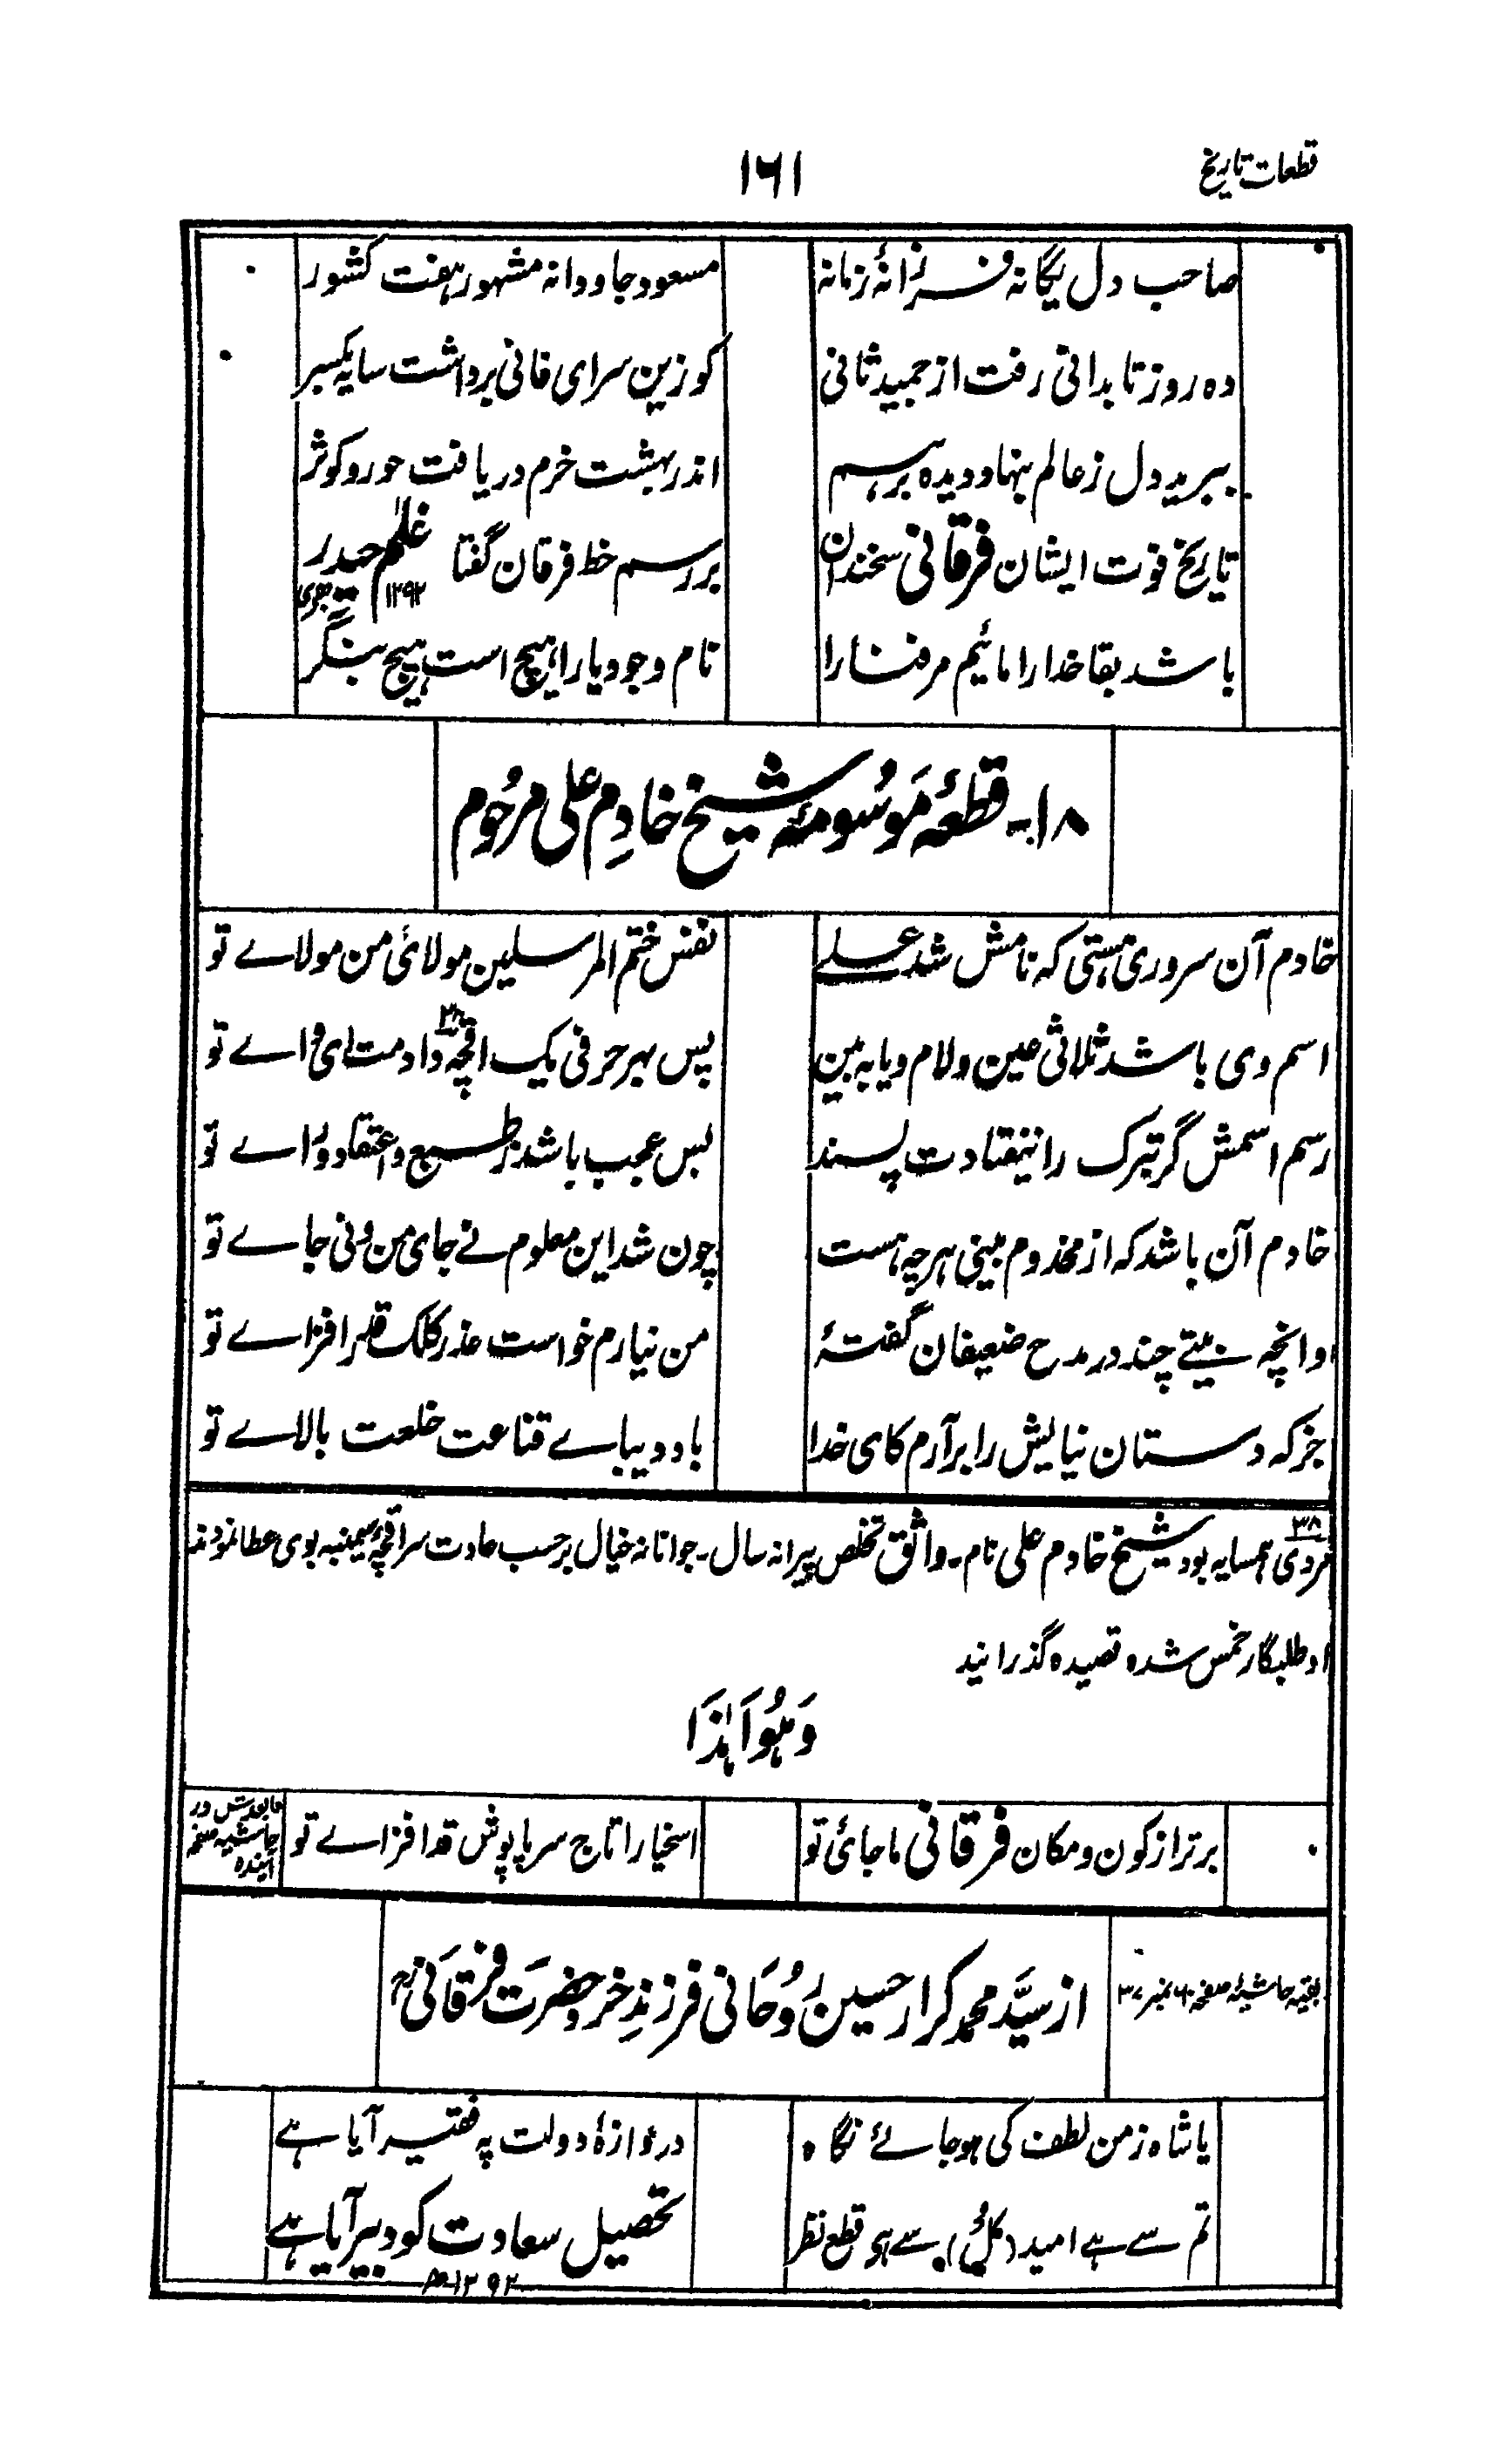 قطعات تاریخ
۱۶۱
صاحب دل یگانہ فرزانۂ زمانہ مسعود جاودانہ مشہور ہفت کشور
دہ روز تا بدانی رفت از جمید ثانی کو زین سرای فانی برداشت سایہ یکسر
ببرید دل ز عالم بنہاد دیدہ برہم اندر بہشت خرم دریافت حور و کوثر
تاریخ فوت ایشان فرقانی سخندان بر رسم خط فرقان گفتا غلم حیدر
۱۲۹۲ ہجری
باشد بقا خدا را مائیم مر فنا را نام وجود یارا ہیچ است ہیچ بنگر
۱۸۔ قطعہ مَوسُومۂ شیخ خادِم علی مرحُوم
خادم آن سروری ہستی کہ نامش شد علے نفس ختم المرسلین مولائ من مولاے تو
اسم وی باشد ثلاثی عین و لام و یا بہ بین پس بہر حرفی یک اقچہ۳۸ دادمت ای واے تو
رسم اسمش گر تبرک را نیفتادت پسند بس عجب باشد ز طبع و اعتقاد و راے تو
خادم آن باشد کہ از مخدوم بینی ہرچہ ہست چون شد این معلوم نے جای من و نی جاے تو
وانچہ بیتے چند در مدح ضعیفان گفتۂ من نیارم خواست عذر کلک قلم افزاے تو
جز کہ دستان نیایش را برآرم کای خدا باد دیباے قناعت خلعت بالاے تو
۳۸ مردی ہمسایہ بود شیخ خادم علی نام۔ واثق تخلص پیرانہ سال۔ جوانانہ خیال برحسب عادت سہ اقچۂ سیمینہ بوی عطا نمودند
او طلبگار خمس شدہ قصیدہ گذرانید
وَہُوَ اہٰذَا
برتر از کون و مکان فرقانی ما جائ تو اسخیا را تاج سر پاپوش قد افزاے تو
مابعدش در حاشیہ صفحہ آیندہ
بقیہ حاشیۂ صفحہ ۱۶۰ نمبر ۳۷
از سیَّد محمد کرار حسین رُوحَانی فرزندِ خرد حضرَت فرقَانیؒ
یا شاہ زمن لطف کی ہوجائے نگاہ دروازۂ دولت پہ فقیر آیا ہے
تم سے ہے امید (کُل) سے ہو قطع نظر تحصیل سعادت کو دبیر آیا ہے
۱۲۹۲ھ